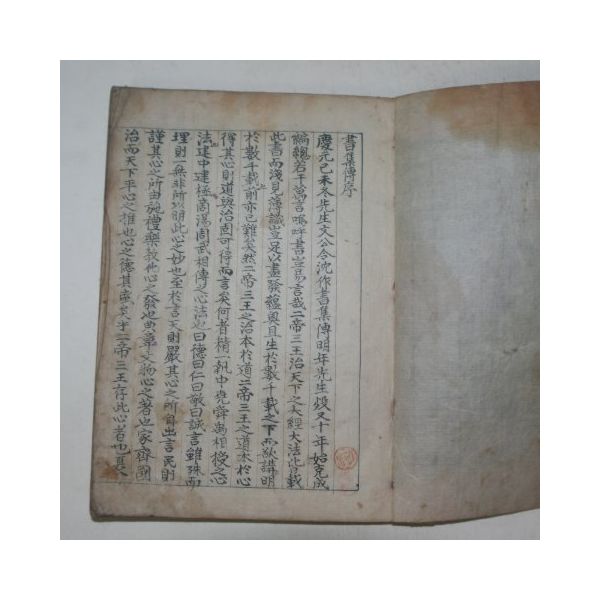 書集傳序
慶元己未冬先生文公令沈作書集傳明年先生歿又十年始克成
編緫若干萬言嗚呼書豈易言哉二帝三王治天下之大經大法皆載
此書而淺見薄識豈足以盡發蘊奧且生於數千載之下而欲講明
於數千載前亦已難矣然二帝三王之治本於道二帝三王之道本於心
得其心則道與治固可得而言矣何者精一執中堯舜禹相授之心
法建中建極商湯周武相傳之心法也曰德曰仁曰敬曰誠言雖殊而
理則一無非所以明此心之妙也至於言天則嚴其心之所自出言民則
謹其心之所由施禮樂敎化心之發也典章文物心之著也家齊國
治而天下平心之推也心之德其盛矣乎二帝三王存此心者也夏